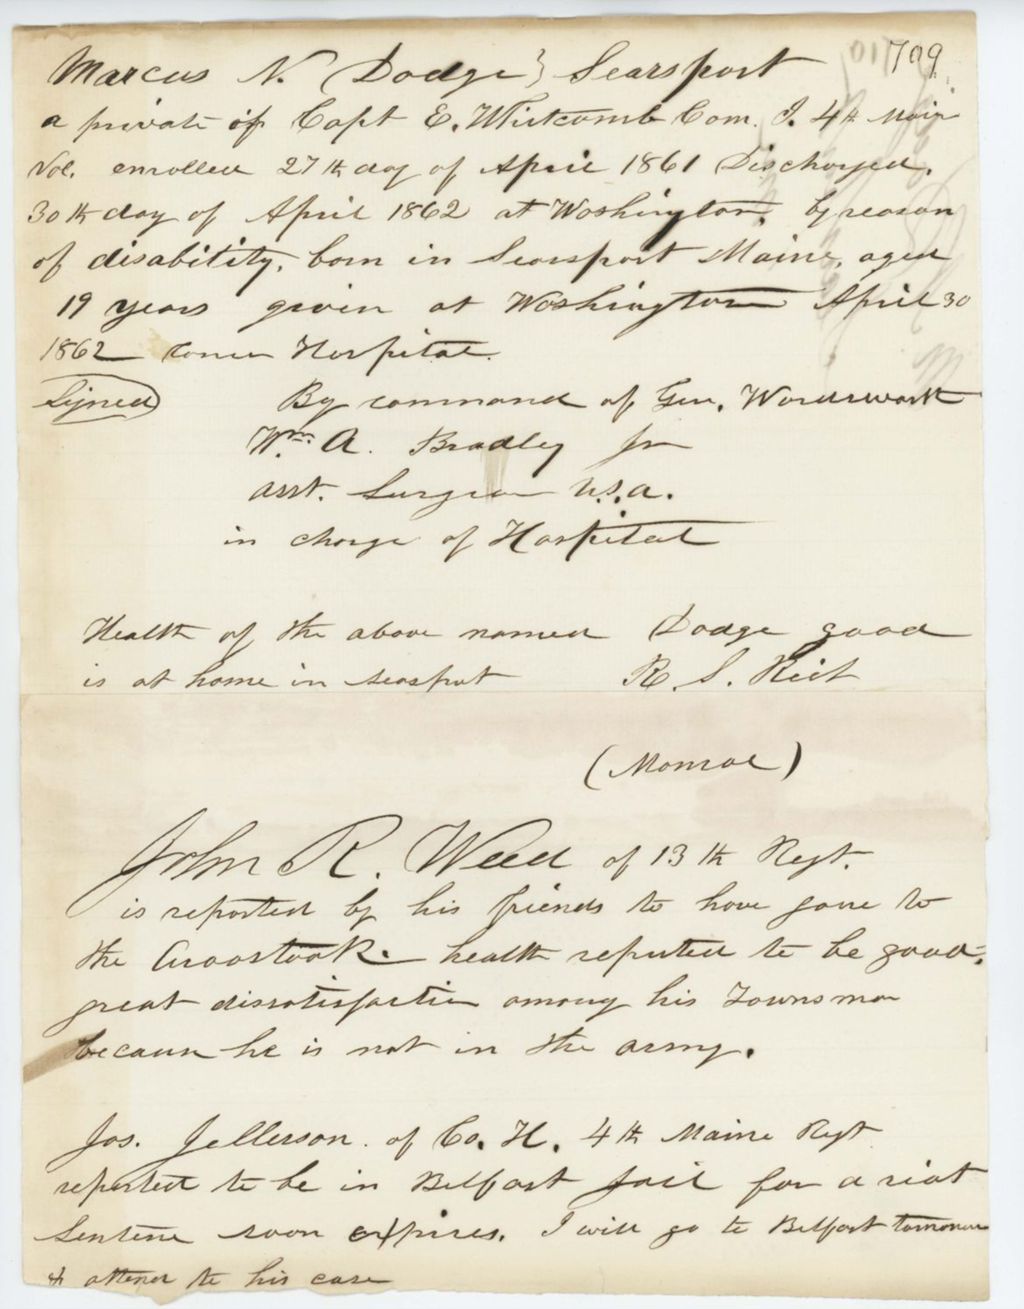 709
Marcus N. Dodge} Searsport
a private of Capt E. Whitcomb Com. I. 4th Main
Vol. enrolled 27th day of April 1861 Discharged.
30th day of April 1862 at Washington, by reason
of disability, born in Searsport Maine, aged
19 years given at Washington April 30
1862 Hospital.
Signed By command of Gen. Wordsworth
Wm. A. Bradley Jr
asst. Surgeon U.S.A.
in charge of Hospital
Health of the above named Dodge good
is at home in Searsport R. S. Rich
(Monroe)
John R. Weed of 13th Regt.
is reported by his friends to have gone to
the Aroostook. health reputed to be good.
great dissatisfaction among his Townsmen
because he is not in the army.
Jos. Jellerson. of Co. H. 4th Maine Regt
reported to be in Belfast Jail for a riot
Sentence soon expires. I will go to Belfast tomorrow
& attend to his case